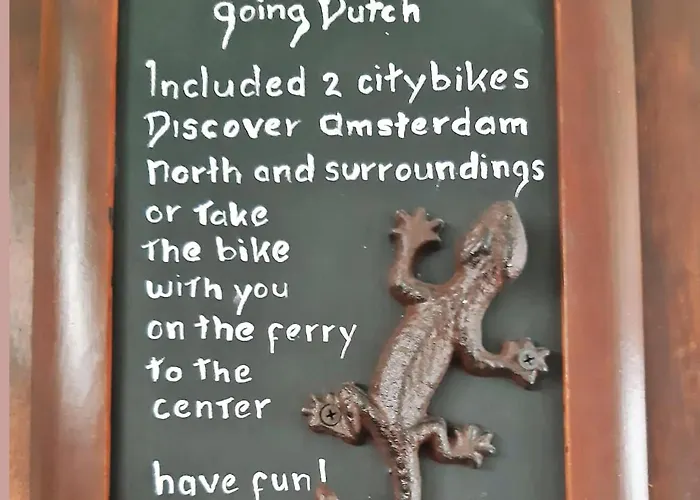 going Dutch
Included 2 citybikes
Discover amsterdam
north and surroundings
or Take
The bike
with you
on the ferry
to the
center
have fun!